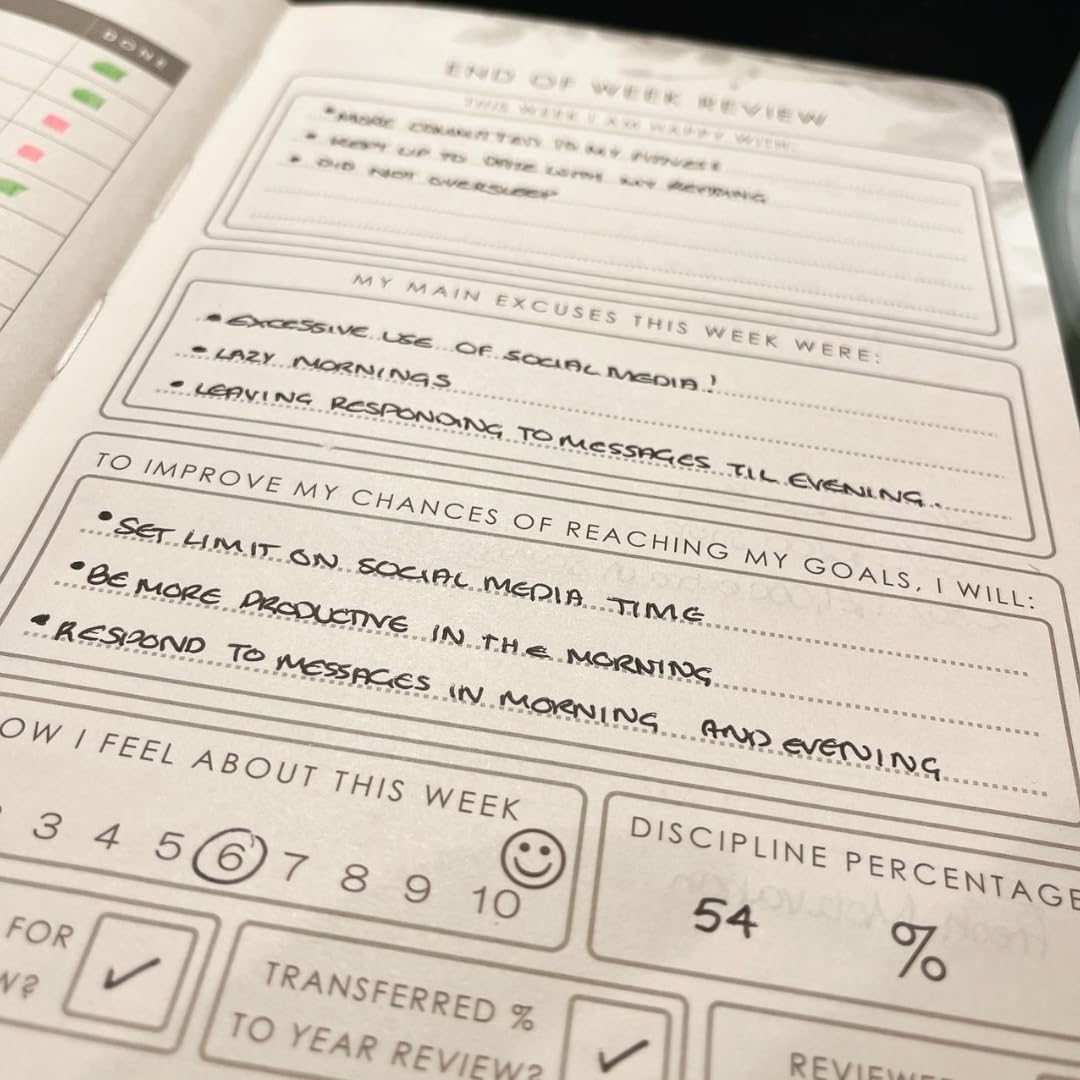 DONE
END OF WEEK REVIEW
THIS WEEK I AM HAPPY WITH:
• MORE COMMITTED TO MY FITNESS
• KEPT UP TO DATE WITH MY REVISING
• DID NOT OVERSLEEP
MY MAIN EXCUSES THIS WEEK WERE:
• EXCESSIVE USE OF SOCIAL MEDIA!
• LAZY MORNINGS
• LEAVING RESPONDING TO MESSAGES TIL EVENING.
TO IMPROVE MY CHANCES OF REACHING MY GOALS, I WILL:
• SET LIMIT ON SOCIAL MEDIA TIME
• BE MORE PRODUCTIVE IN THE MORNING
• RESPOND TO MESSAGES IN MORNING AND EVENING
OW I FEEL ABOUT THIS WEEK
3 4 5 6 7 8 9 10
DISCIPLINE PERCENTAGE
54 %
FOR
W?
TRANSFERRED %
TO YEAR REVIEW?
REVIEWE